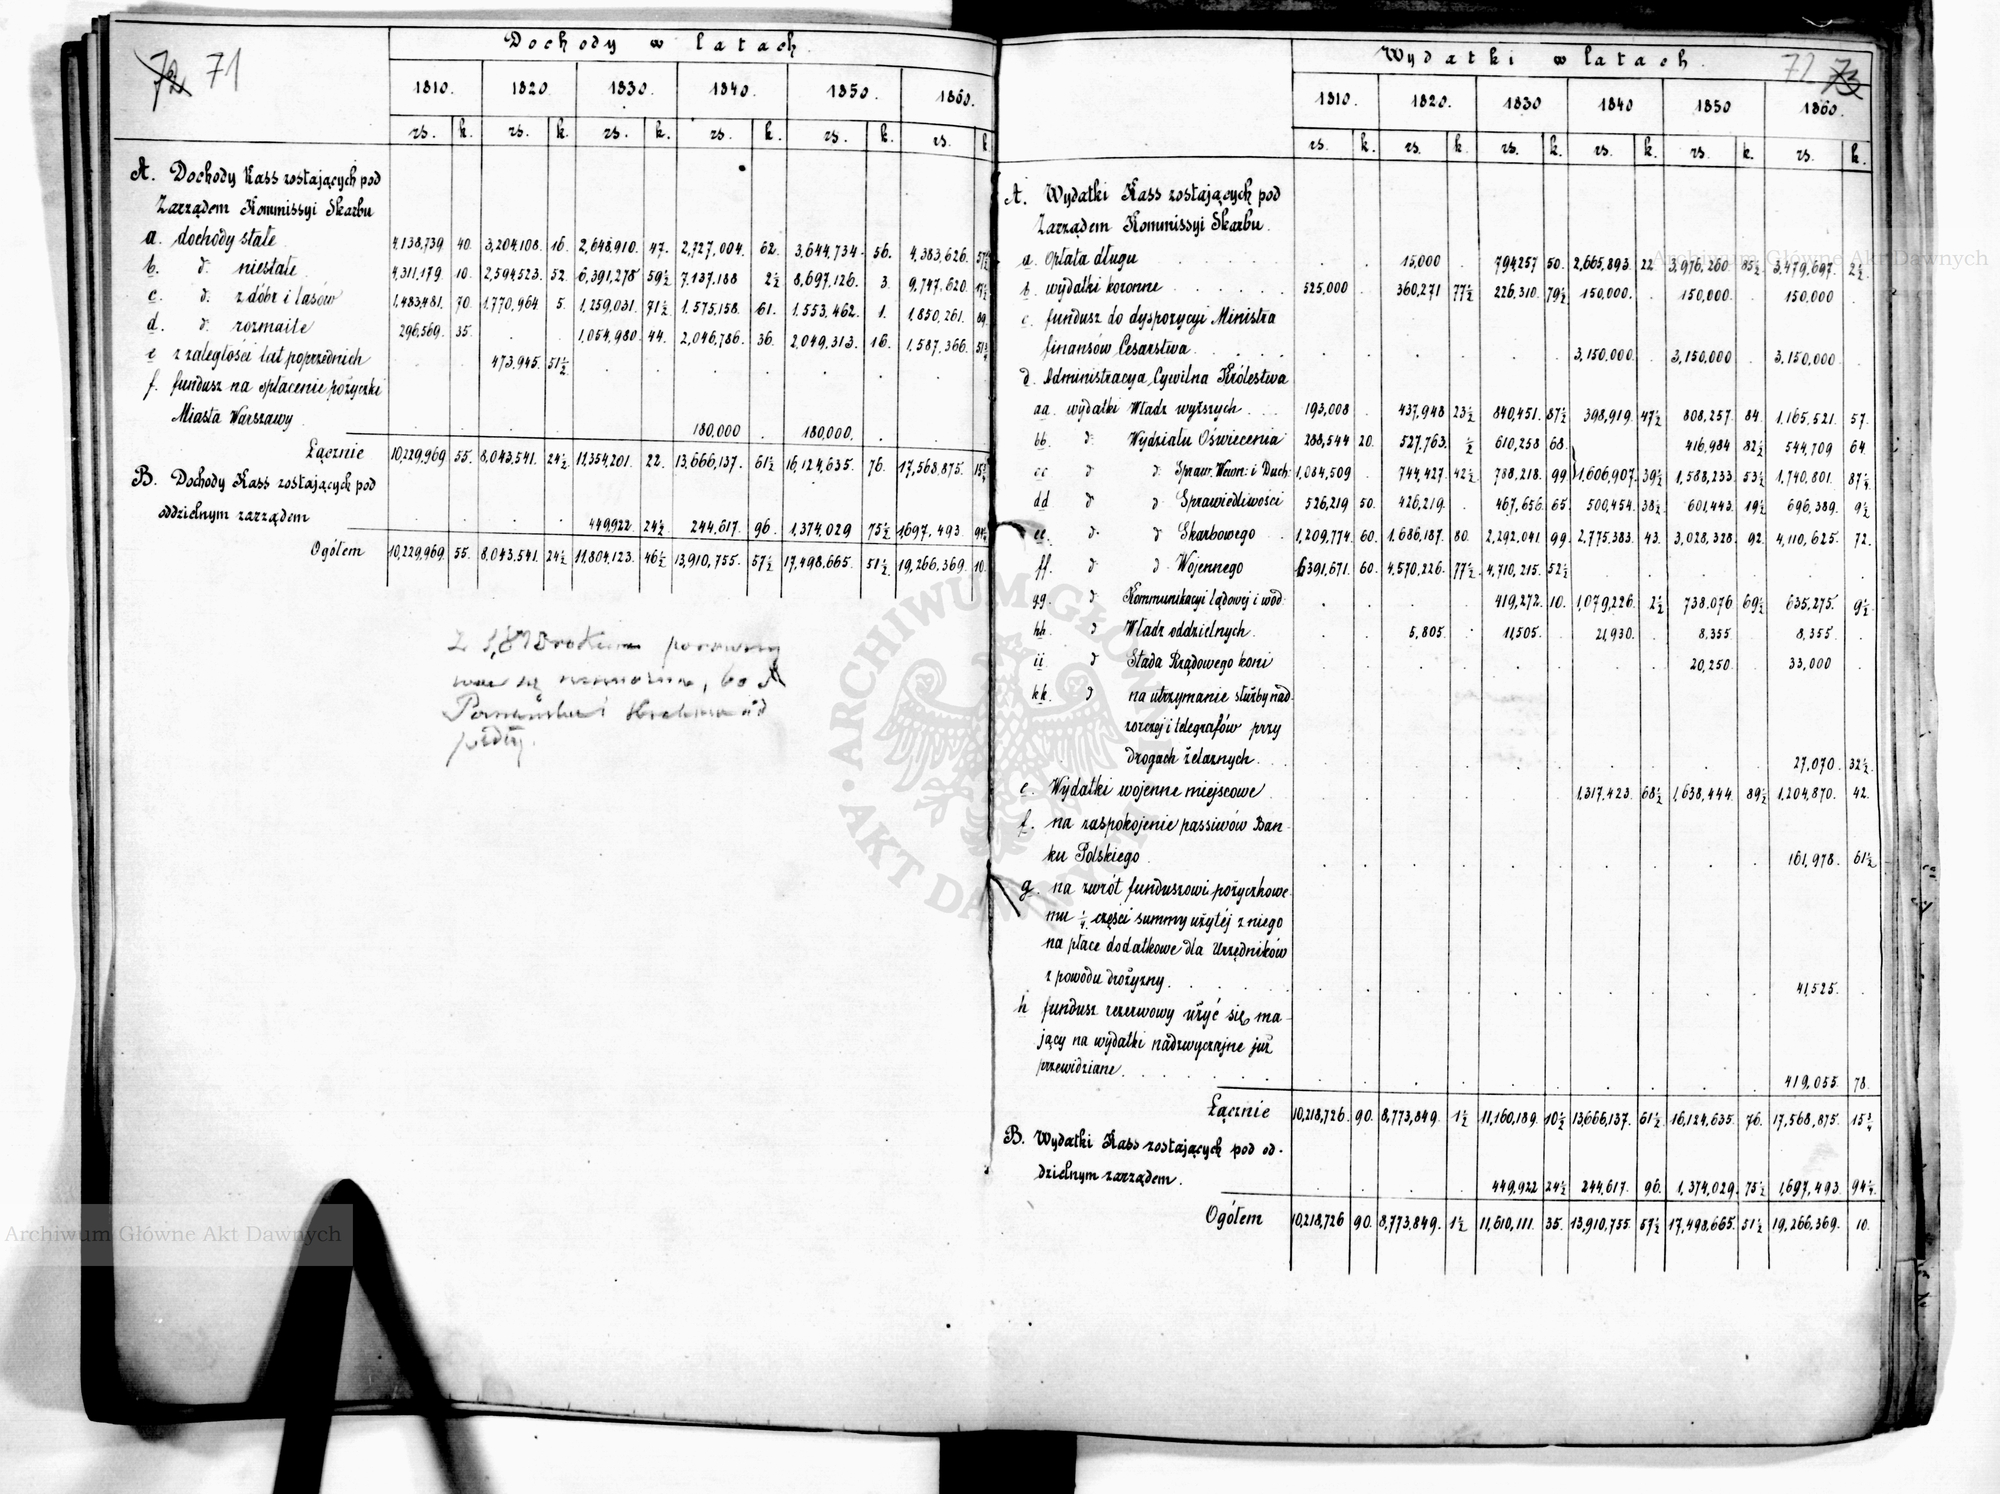 72 71
Dochody w latach
1810. 1820. 1830. 1840. 1850. 1860.
rs. k. rs. k. rs. k. rs. k. rs. k. rs. k.
A. Dochody Kass zostających pod
Zarządem Kommissyi Skarbu
a. dochody stałe 4,138,739 40. 3,204,108. 16. 2,648,910. 47. 2,727,004. 62. 3,644,734. 56. 4,383,626.
b. d: niestałe 4,311,179. 10. 2,594,523. 52. 6,391,278 59½ 7,137,188 2½ 8,697,126. 3. 9,747,620.
c. d: z dóbr i lasów 1,483,481. 70. 1,770,964. 5. 1,259,031. 71½ 1,575,158. 61. 1,553,462. 1. 1,850,261. 89
d. d: rozmaite 296,569. 35. 1,054,980. 44. 2,046,786. 36. 2,049,313. 16. 1,587,366.
e z zaległości lat poprzednich 473,945. 51½
f. fundusz na spłacenie pożyczki
Miasta Warszawy 180,000 180,000.
Łącznie 10,229,969 55. 8,043,541. 24½ 11,354,201. 22. 13,666,137. 61½ 16,124,635. 76. 17,568,875. 15¾
B. Dochody Kass zostających pod
oddzielnym zarządem 449,922 24½ 244,617. 96. 1,374,029 75½ 1,697,493
Ogółem 10,229,969. 55. 8,043,541. 24½ 11,804,123. 46½ 13,910,755. 57½ 17,498,665. 51½ 19,266,369. 10.
Archiwum Główne Akt Dawnych
72 73
Wydatki w latach.
1810. 1820. 1830 1840 1850 1860.
rs. k. rs. k. rs. k. rs. k. rs. k. rs. k.
A. Wydatki Kass zostających pod
Zarządem Kommissyi Skarbu.
a. Opłata długu 15,000 794,257 50. 2,665,893. 22 3,976,260 85½ 3,479,697. 2½
b. wydatki koronne 525,000 360,271 77½ 226,310. 79½ 150,000. 150,000. 150,000
c. fundusz do dyspozycyi Ministra
finansów Cesarstwa 3,150,000. 3,150,000 3,150,000
d. Administracya Cywilna Królestwa
aa. wydatki Władz wyższych 193,008 437,948 23½ 840,451. 87½ 398,919. 47½ 808,257. 84. 1,165,521. 57.
bb. d: Wydziału Oświecenia 288,544 20. 527,763. ½ 610,258 68. 416,984 82½ 544,709 64.
cc d d: Spraw. Wewn: i Duch: 1,084,509 744,427. 42½ 788,218. 99 1,606,907. 39½ 1,588,233. 53½ 1,740,801.
dd d d Sprawiedliwości 526,219 50. 426,219. 467,656 65 500,454. 38½ 601,443. 19½ 696,389. 9½
ee. d. d Skarbowego 1,209,774 60. 1,686,187. 80. 2,292,041 99. 2,775,383. 43. 3,028,328 92. 4,110,625. 72.
ff. d d Wojennego 6,391,671. 60. 4,570,226. 77½ 4,710,215. 52½
gg. d Kommunikacyi lądowej i wod: 419,272. 10. 1,079,226. 2½ 738,076 69½ 635,275. 9½
hh. d Władz oddzielnych 5,805. 11,505. 21,930. 8,355. 8,355.
ii d Stada Rządowego koni 20,250. 33,000
kk. d na utrzymanie służby nad-
zorczej i telegrafów przy
drogach żelaznych 27,070. 32½
e. Wydatki wojenne miejscowe 1,317,423. 68½ 1,638,444. 89½ 1,204,870. 42.
f. na zaspokojenie passiwów Ban-
ku Polskiego 161,978. 61½
g. na zwrót funduszowi pożyczkowe-
mu ¼ części summy użytéj z niego
na płace dodatkowe dla Urzędników
z powodu drożyzny. 41,525.
h fundusz rezerwowy użyć się ma-
jący na wydatki nadzwyczajne już
przewidziane. 419,055. 78.
Łącznie 10,218,726. 90. 8,773,849. 1½ 11,160,189. 10½ 13,666,137. 61½ 16,124,635. 76. 17,568,875. 15¾
B. Wydatki Kass zostających pod od-
dzielnym zarządem. 449,922 24½ 244,617. 96. 1,374,029. 75½ 1,697,493 94¼
Ogółem 10,218,726 90. 8,773,849. 1½ 11,610,111. 35. 13,910,755. 57½ 17,498,665. 51½ 19,266,369. 10.
Archiwum Główne Akt Dawnych
ARCHIWUM GŁÓWNE AKT DAWNYCH